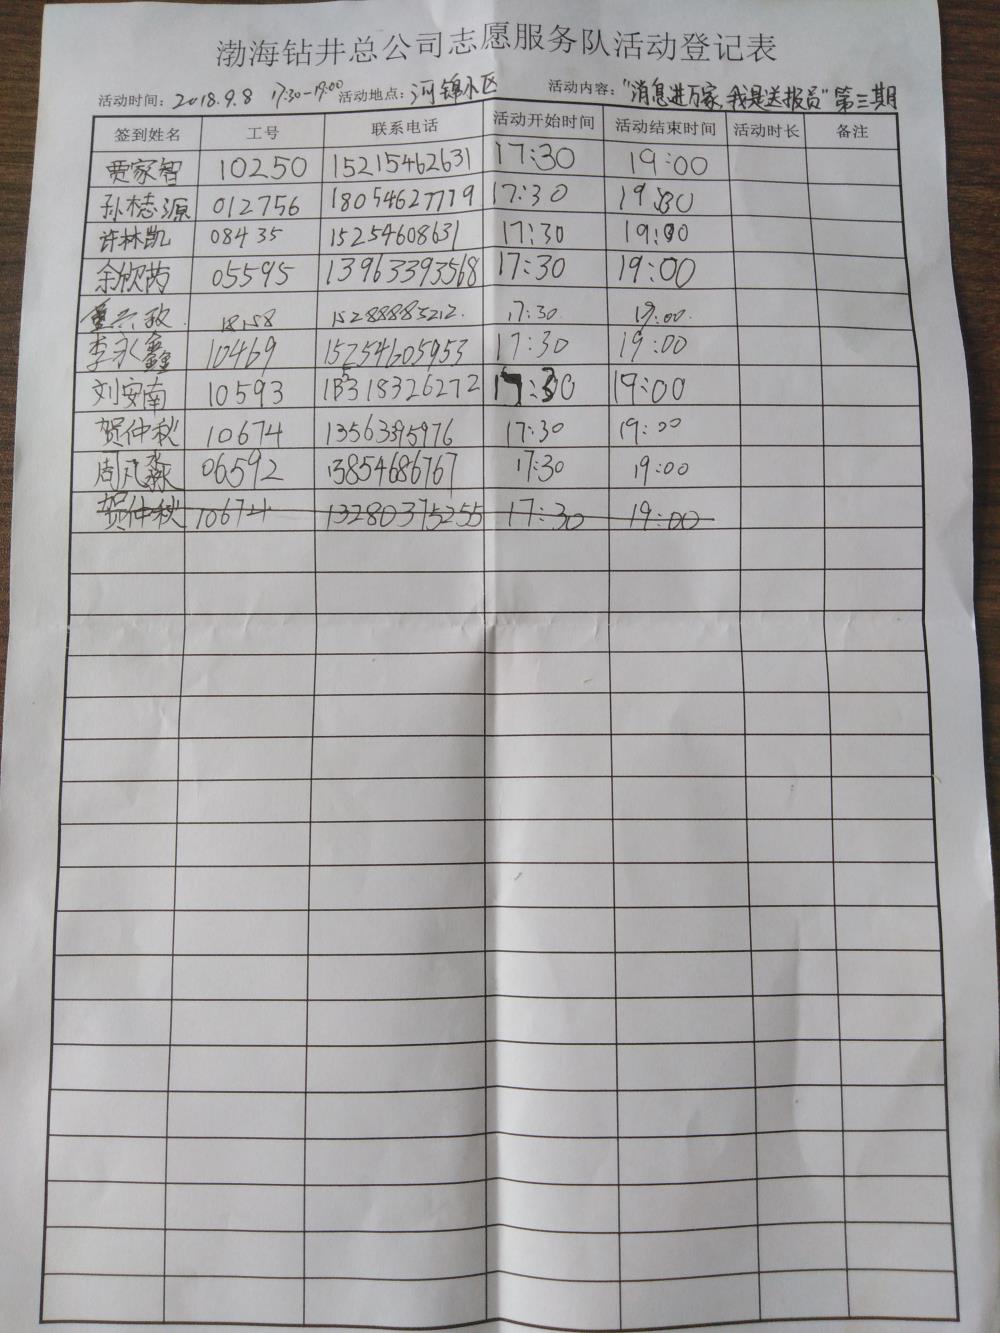 渤海钻井总公司志愿服务队活动登记表
活动时间：2018.9.8 17:30-19:00 活动地点：河锦小区 活动内容："消息进万家，我是送报员"第三期
签到姓名 工号 联系电话 活动开始时间 活动结束时间 活动时长 备注
贾家智 10250 15215462631 17:30 19:00
孙志源 012756 18054627779 17:30 19:00
许林凯 08435 15254608631 17:30 19:00
余欣芮 05595 13963393568 17:30 19:00
18158 15288885212 17:30 19:00
李永鑫 10469 15254605953 17:30 19:00
刘安南 10593 18318326272 17:30 19:00
贺仲秋 10674 13563395976 17:30 19:00
周凡淼 06592 13854686767 17:30 19:00
贺仲秋 10674 13280375255 17:30 19:00